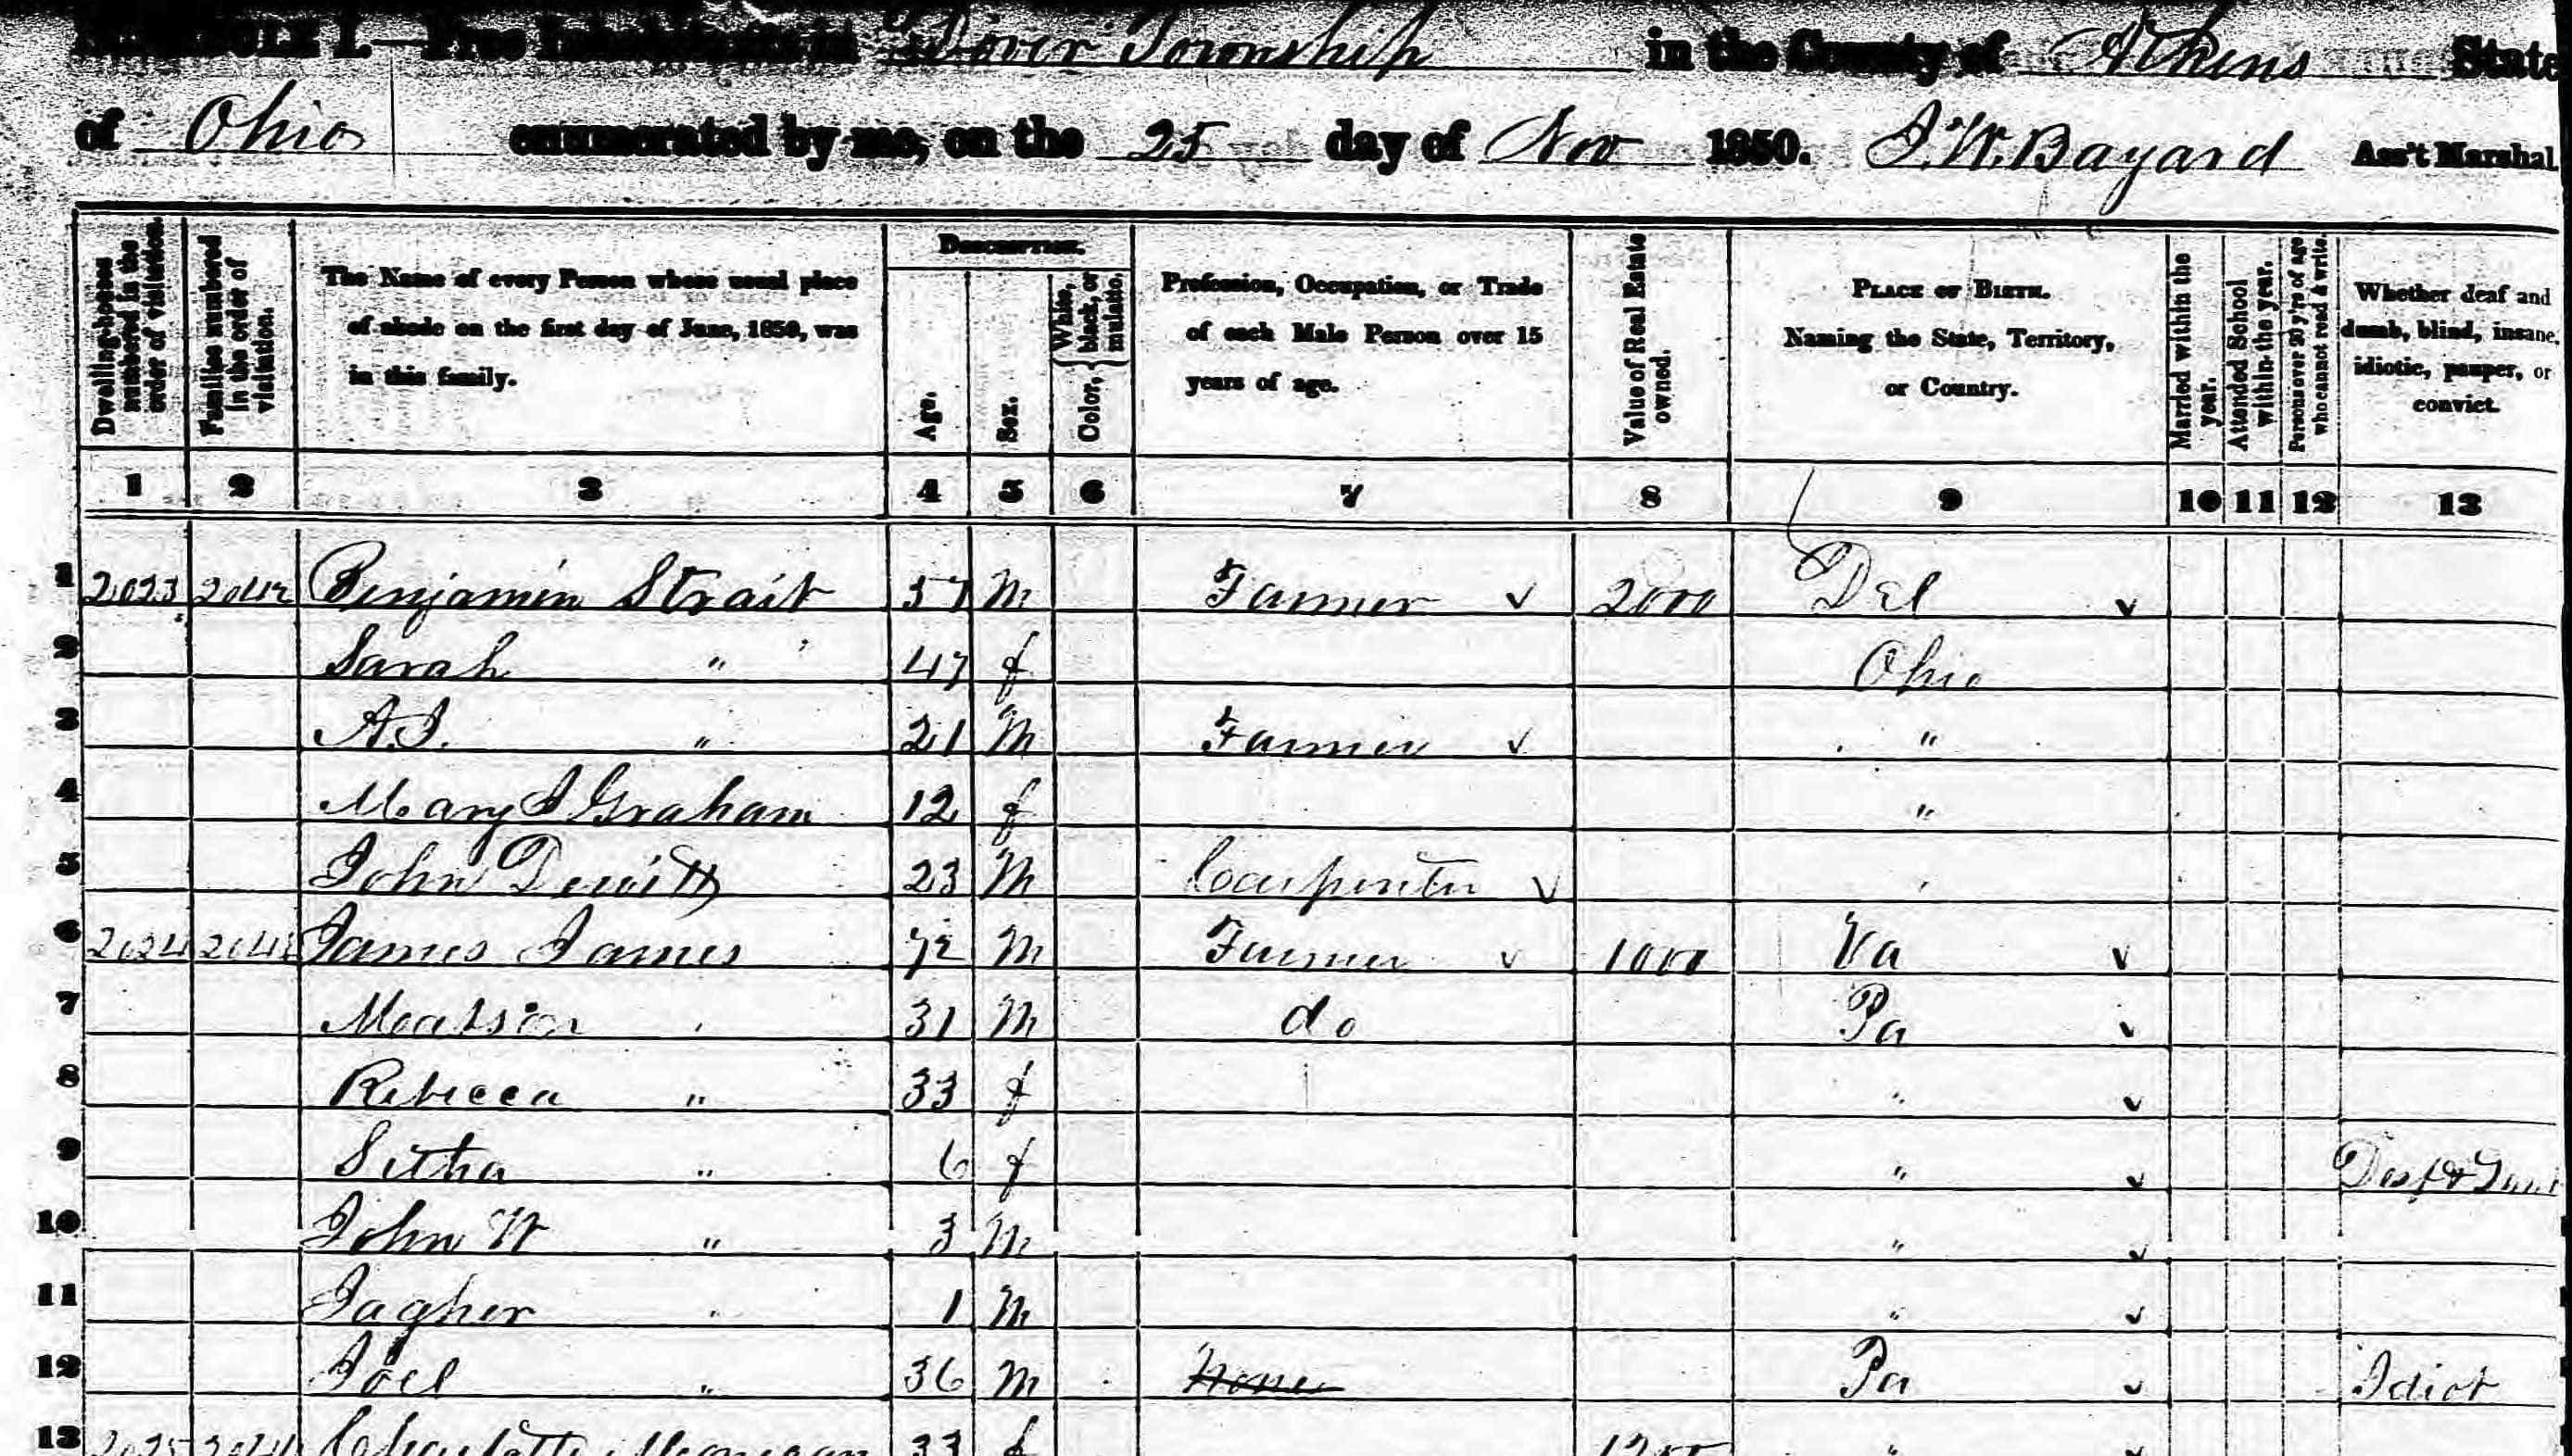 SCHEDULE I.—Free Inhabitants in Dover Township in the County of Athens State
of Ohio enumerated by me, on the 25 day of Nov 1850. J. W. Bayard Ass't Marshal.
Dwelling-houses numbered in the order of visitation.
Families numbered in the order of visitation.
The Name of every Person whose usual place of abode on the first day of June, 1850, was in this family.
Description.
Age.
Sex.
Color, { White, black, or mulatto.
Profession, Occupation, or Trade of each Male Person over 15 years of age.
Value of Real Estate owned.
Place of Birth. Naming the State, Territory, or Country.
Married within the year.
Attended School within the year.
Persons over 20 y'rs of age who cannot read & write.
Whether deaf and dumb, blind, insane, idiotic, pauper, or convict.
1 2 3 4 5 6 7 8 9 10 11 12 13
1 2023 Benjamin Strait 57 M Farmer ✓ 2000 Del ✓
2 Sarah " 47 f Ohio
3 A.J. " 21 M Farmer ✓ "
4 Mary J Graham 12 f "
5 John Dewitt 23 M Carpenter ✓ "
6 2024 James James 72 M Farmer ✓ 1000 Va ✓
7 " 31 M do Pa ✓
8 Rebecca " 33 f " ✓
9 Sitha " 6 f " ✓ Deaf &
10 John W " 3 M " ✓
11 " 1 M " ✓
12 Joel " 36 M None Pa ✓ Idiot
13 2025 Charlotte 33 f 1200 " ✓